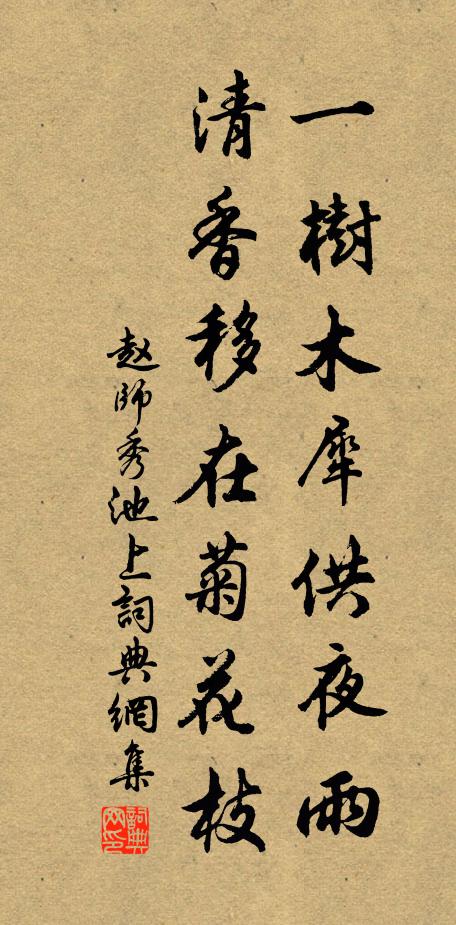 一樹木犀供夜雨
清香移在菊花枝
赵師秀池上詞典網集
詞典网印